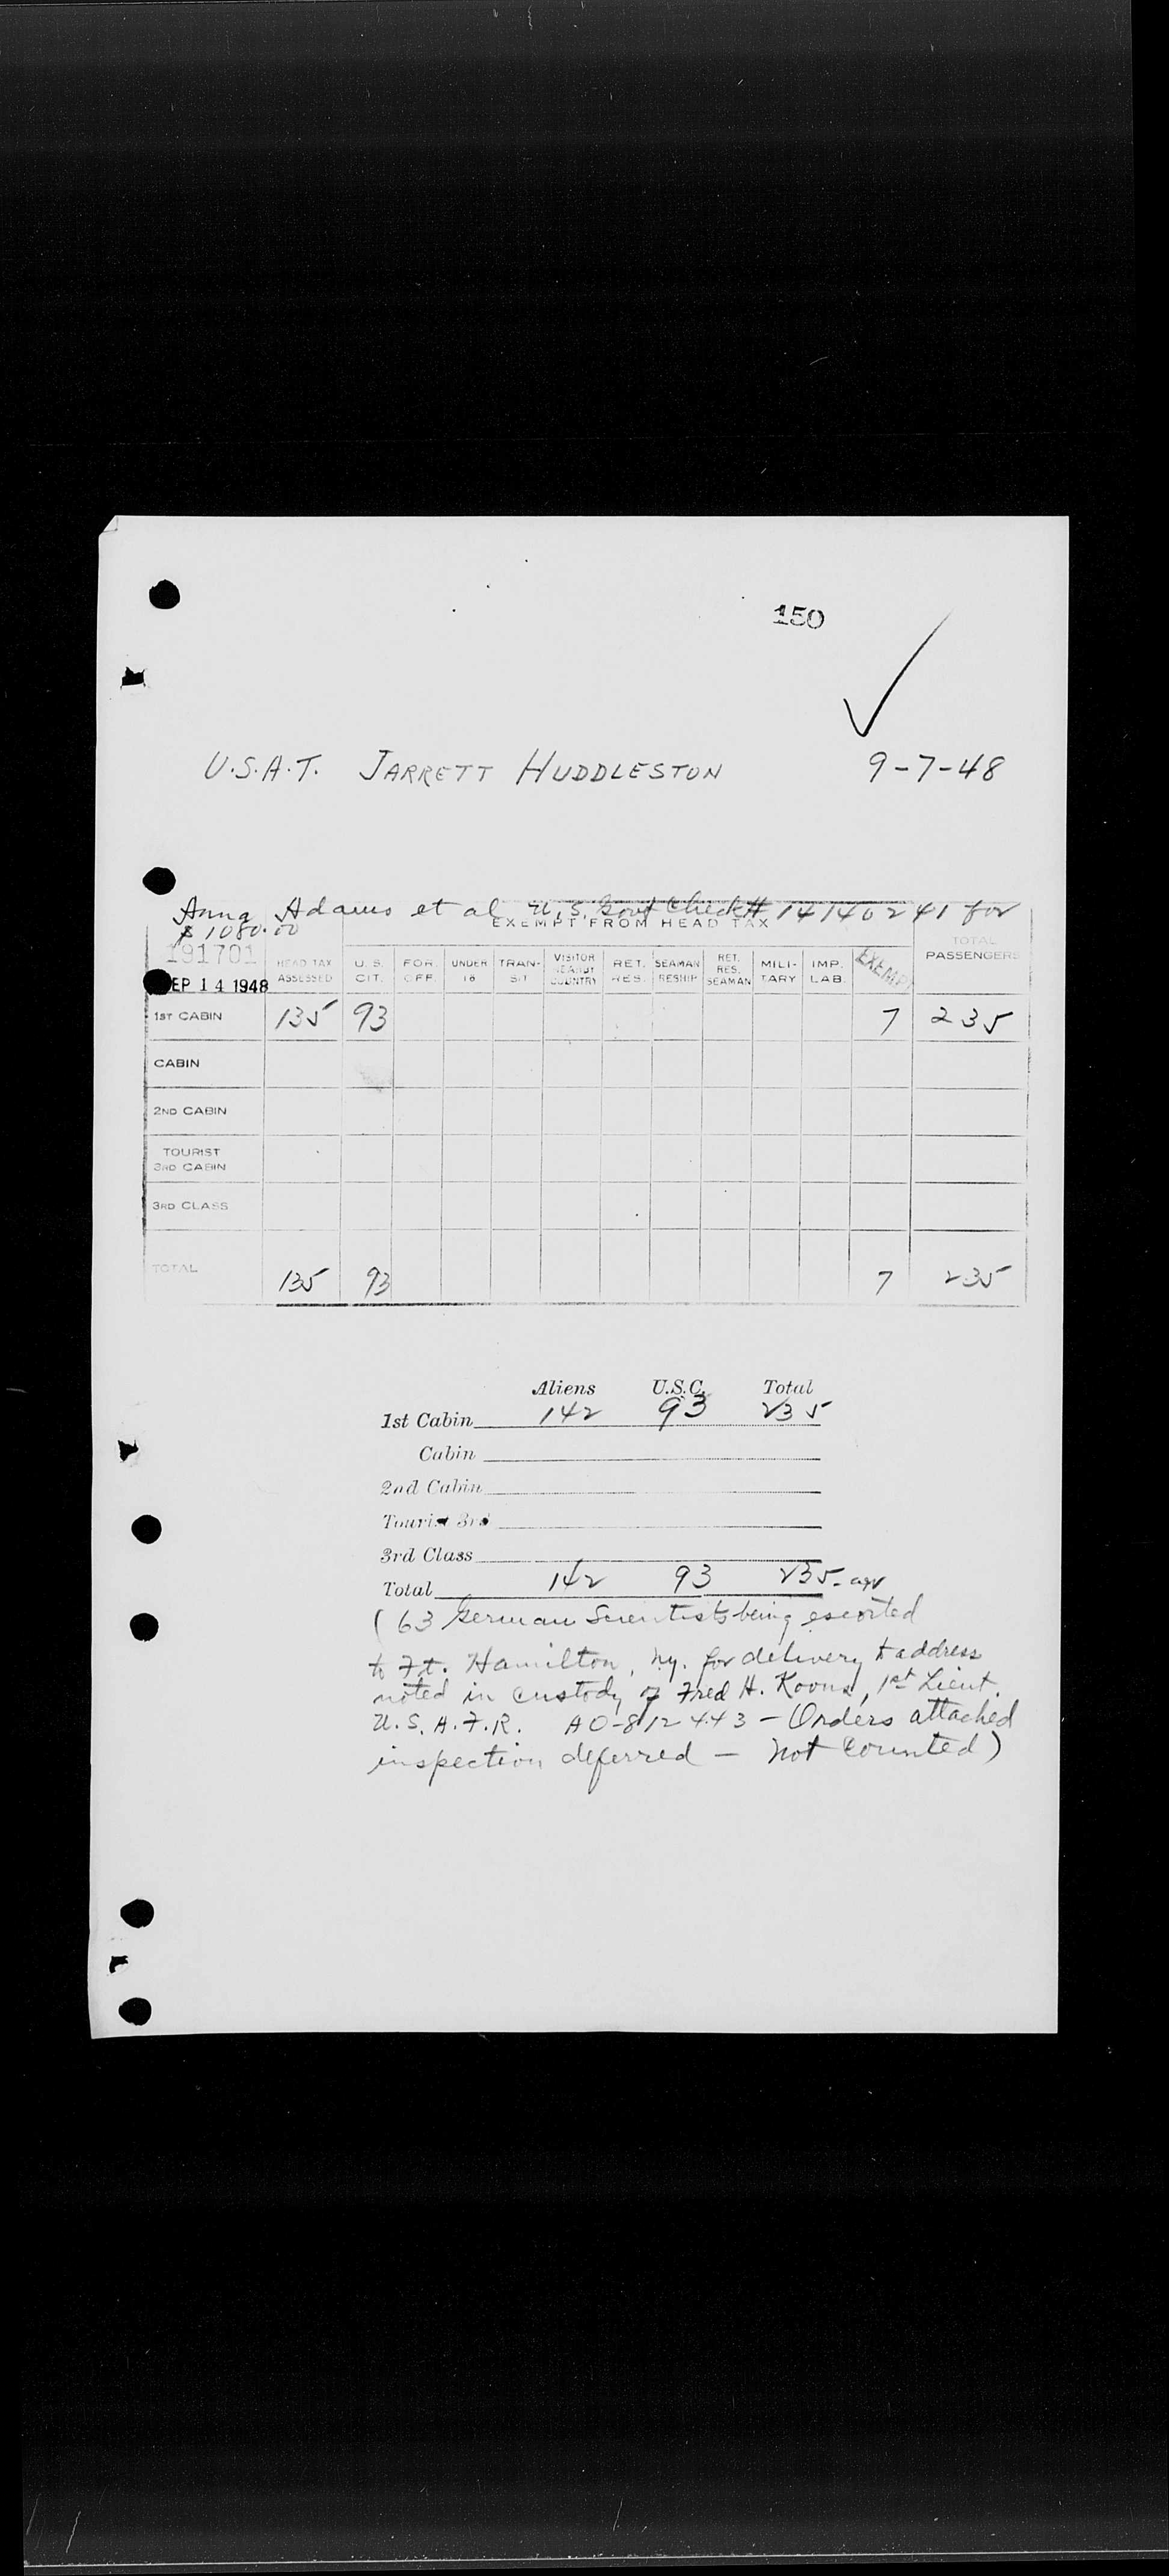 150
U.S.A.T. JARRETT HUDDLESTON 9-7-48
Anna Adams et al U.S. Govt Check # 14140241 for
$1080.00
EXEMPT FROM HEAD TAX
191701
SEP 14 1948
HEAD TAX ASSESSED U.S. CIT. FOR. OFF. UNDER 16 TRAN-SIT VISITOR NEARBY COUNTRY RET. RES. SEAMAN RESHIP RET. RES. SEAMAN MILI-TARY IMP. LAB. EXEMPT TOTAL PASSENGERS
1ST CABIN 135 93 7 235
CABIN
2ND CABIN
TOURIST
3RD CABIN
3RD CLASS
TOTAL 135 93 7 235
Aliens U.S.C. Total
1st Cabin 142 93 235
Cabin
2nd Cabin
Tourist 3rd
3rd Class
Total 142 93 235
(63 German Scientists being escorted
to Ft. Hamilton, Ny. for delivery to address
noted in custody of Fred H. Koons, 1st Lieut.
U.S.A.F.R. AO-812443 - Orders attached
inspection deferred - not counted)